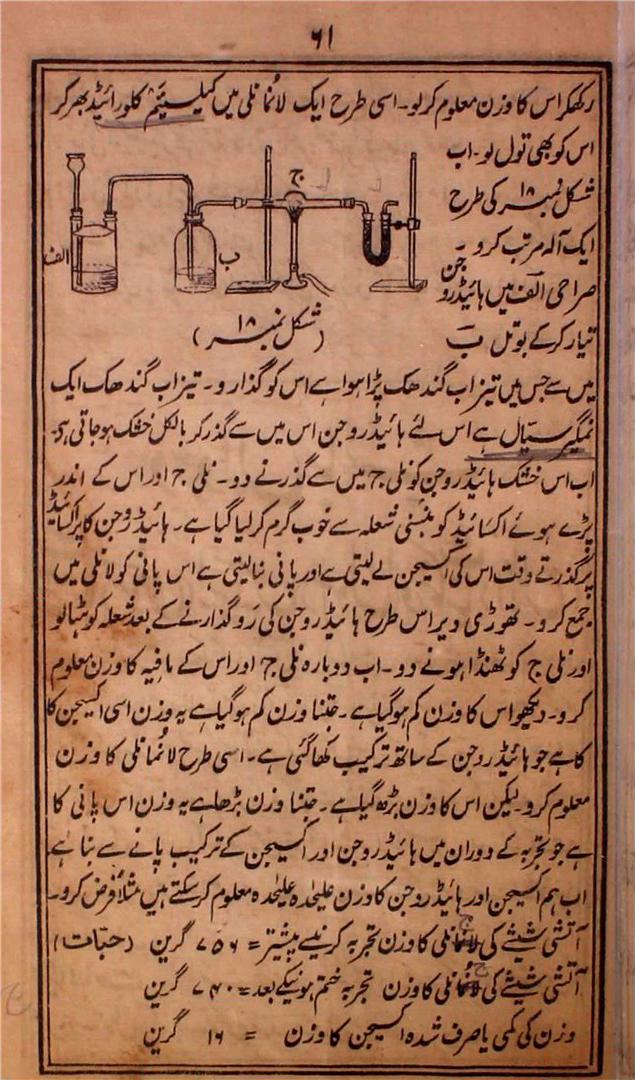 ۶۱
رکھکر اس کا وزن معلوم کرلو۔ اسی طرح ایک لانما نلی میں کیلسیئم کلورائیڈ بھر کر
اس کو بھی تول لو۔ اب
شکل نمبر ۱۸ کی طرح
ایک آلہ مرتب کرو۔
صراحی الف میں ہائیڈروجن
تیار کر کے بوتل ب
الف
ب
ج
(شکل نمبر ۱۸)
میں سے جس میں تیزاب گندھک پڑا ہوا ہے اس کو گذارو۔ تیزاب گندھک ایک
نمگیر سیال ہے اس لئے ہائیڈروجن اس میں سے گذر کر بالکل خشک ہوجاتی ہی۔
اب اس خشک ہائیڈروجن کو نلی ج میں سے گذرنے دو۔ نلی ج اور اس کے اندر
پڑے ہوئے اکسائیڈ کو بنسنی شعلہ سے خوب گرم کرلیا گیا ہے۔ ہائیڈروجن کاپر اکسائیڈ
پر گذرتے وقت اس کی آکسیجن لے لیتی ہے اور پانی بنا لیتی ہے اس پانی کو لا نلی میں
جمع کرو۔ تھوڑی دیر اس طرح ہائیڈروجن کی رو گذارنے کے بعد شعلہ کو ہٹالو
اور نلی ج کو ٹھنڈا ہونے دو۔ اب دوبارہ نلی ج اور اس کے مافیہ کا وزن معلوم
کرو۔ دیکھو اس کا وزن کم ہوگیا ہے۔ جتنا وزن کم ہوگیا ہے یہ وزن اسی آکسیجن کا
کا ہے جو ہائیڈروجن کے ساتھ ترکیب کھا گئی ہے۔ اسی طرح لانما نلی کا وزن
معلوم کرو۔ لیکن اس کا وزن بڑھ گیا ہے۔ جتنا وزن بڑھا ہے یہ وزن اس پانی کا
ہے جو تجربہ کے دوران میں ہائیڈروجن اور آکسیجن کے ترکیب پانے سے بنا ہے
اب ہم آکسیجن اور ہائیڈروجن کا وزن علیحدہ علیحدہ معلوم کرسکتے ہیں مثلاً فرض کرو۔
آتشی شیشے کی نلی کا وزن تجربہ کرنیسے پیشتر = ۷۵۶ گرین (حبّات)
آتشی شیشے کی نلی کا وزن تجربہ ختم ہونیکے بعد = ۷۴۰ گرین
وزن کی کمی یا صرف شدہ آکسیجن کا وزن = ۱۶ گرین